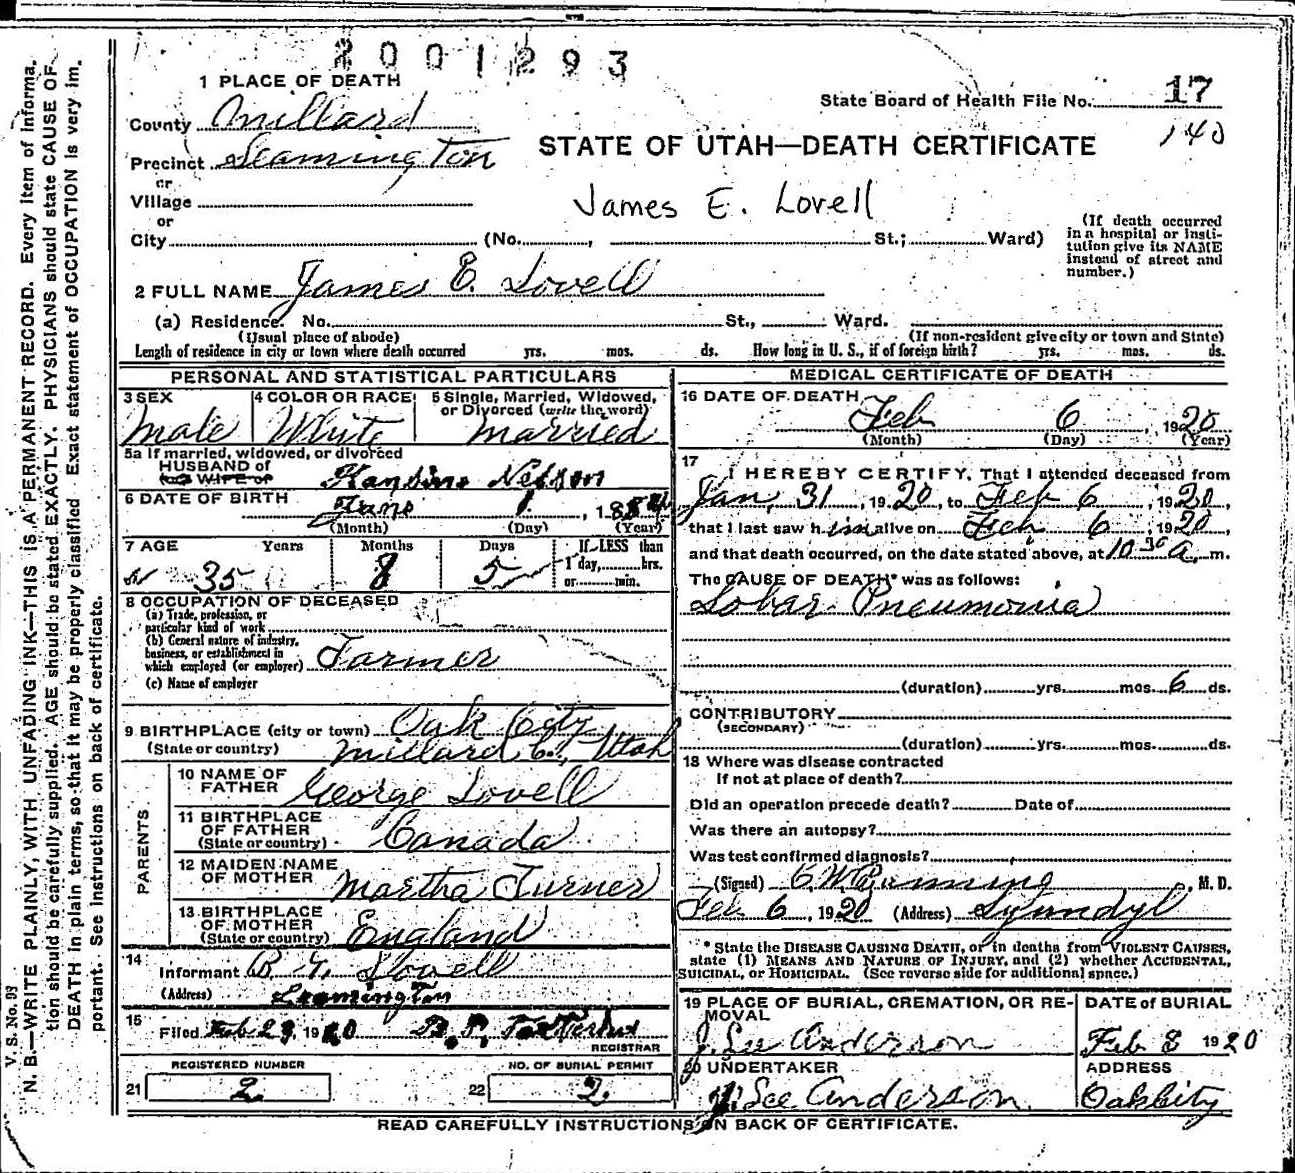 2001293
1 PLACE OF DEATH
State Board of Health File No. 17
County Millard
140
STATE OF UTAH—DEATH CERTIFICATE
Precinct Leamington
or
Village
James E. Lovell
or
City (No. , St.; Ward)
(If death occurred
in a hospital or insti-
tution give its NAME
instead of street and
number.)
2 FULL NAME James E. Lovell
(a) Residence. No. St., Ward.
(Usual place of abode) (If non-resident give city or town and State)
Length of residence in city or town where death occurred yrs. mos. ds. How long in U. S., if of foreign birth? yrs. mos. ds.
PERSONAL AND STATISTICAL PARTICULARS
3 SEX 4 COLOR OR RACE 5 Single, Married, Widowed,
or Divorced (write the word)
Male White Married
5a If married, widowed, or divorced
HUSBAND of
(or) WIFE of
6 DATE OF BIRTH June 1, 188
(Month) (Day) (Year)
7 AGE Years Months Days If LESS than
1 day, hrs.
or min.
35 8 5
8 OCCUPATION OF DECEASED
(a) Trade, profession, or
particular kind of work
(b) General nature of industry,
business, or establishment in
which employed (or employer) Farmer
(c) Name of employer
9 BIRTHPLACE (city or town) Oak City
(State or country) Millard Co., Utah
PARENTS
10 NAME OF
FATHER George Lovell
11 BIRTHPLACE
OF FATHER
(State or country) Canada
12 MAIDEN NAME
OF MOTHER Martha Turner
13 BIRTHPLACE
OF MOTHER
(State or country) England
14
Informant Lovell
(Address) Leamington
15
Filed Feb 29, 1920
REGISTRAR
REGISTERED NUMBER NO. OF BURIAL PERMIT
21 2 22 2
MEDICAL CERTIFICATE OF DEATH
16 DATE OF DEATH Feb 6, 1920
(Month) (Day) (Year)
17
I HEREBY CERTIFY, That I attended deceased from
Jan, 31, 1920, to Feb 6, 1920,
that I last saw him alive on Feb 6, 1920,
and that death occurred, on the date stated above, at 10 30 A. m.
The CAUSE OF DEATH* was as follows:
Lobar Pneumonia
(duration) yrs. mos. 6 ds.
CONTRIBUTORY
(SECONDARY)
(duration) yrs. mos. ds.
18 Where was disease contracted
If not at place of death?
Did an operation precede death? Date of
Was there an autopsy?
Was test confirmed diagnosis?
(Signed) , M. D.
Feb 6, 1920 (Address) Lynndyl
* State the DISEASE CAUSING DEATH, or in deaths from VIOLENT CAUSES,
state (1) MEANS AND NATURE OF INJURY, and (2) whether ACCIDENTAL,
SUICIDAL, or HOMICIDAL. (See reverse side for additional space.)
19 PLACE OF BURIAL, CREMATION, OR RE-
MOVAL
DATE of BURIAL
J. Lee Anderson Feb 8 1920
20 UNDERTAKER ADDRESS
J. Lee Anderson Oak City
READ CAREFULLY INSTRUCTIONS ON BACK OF CERTIFICATE.
V. S. No. 93
N. B.—WRITE PLAINLY, WITH UNFADING INK—THIS IS A PERMANENT RECORD. Every item of informa-
tion should be carefully supplied. AGE should be stated EXACTLY. PHYSICIANS should state CAUSE OF
DEATH in plain terms, so that it may be properly classified Exact statement of OCCUPATION is very im-
portant. See instructions on back of certificate.